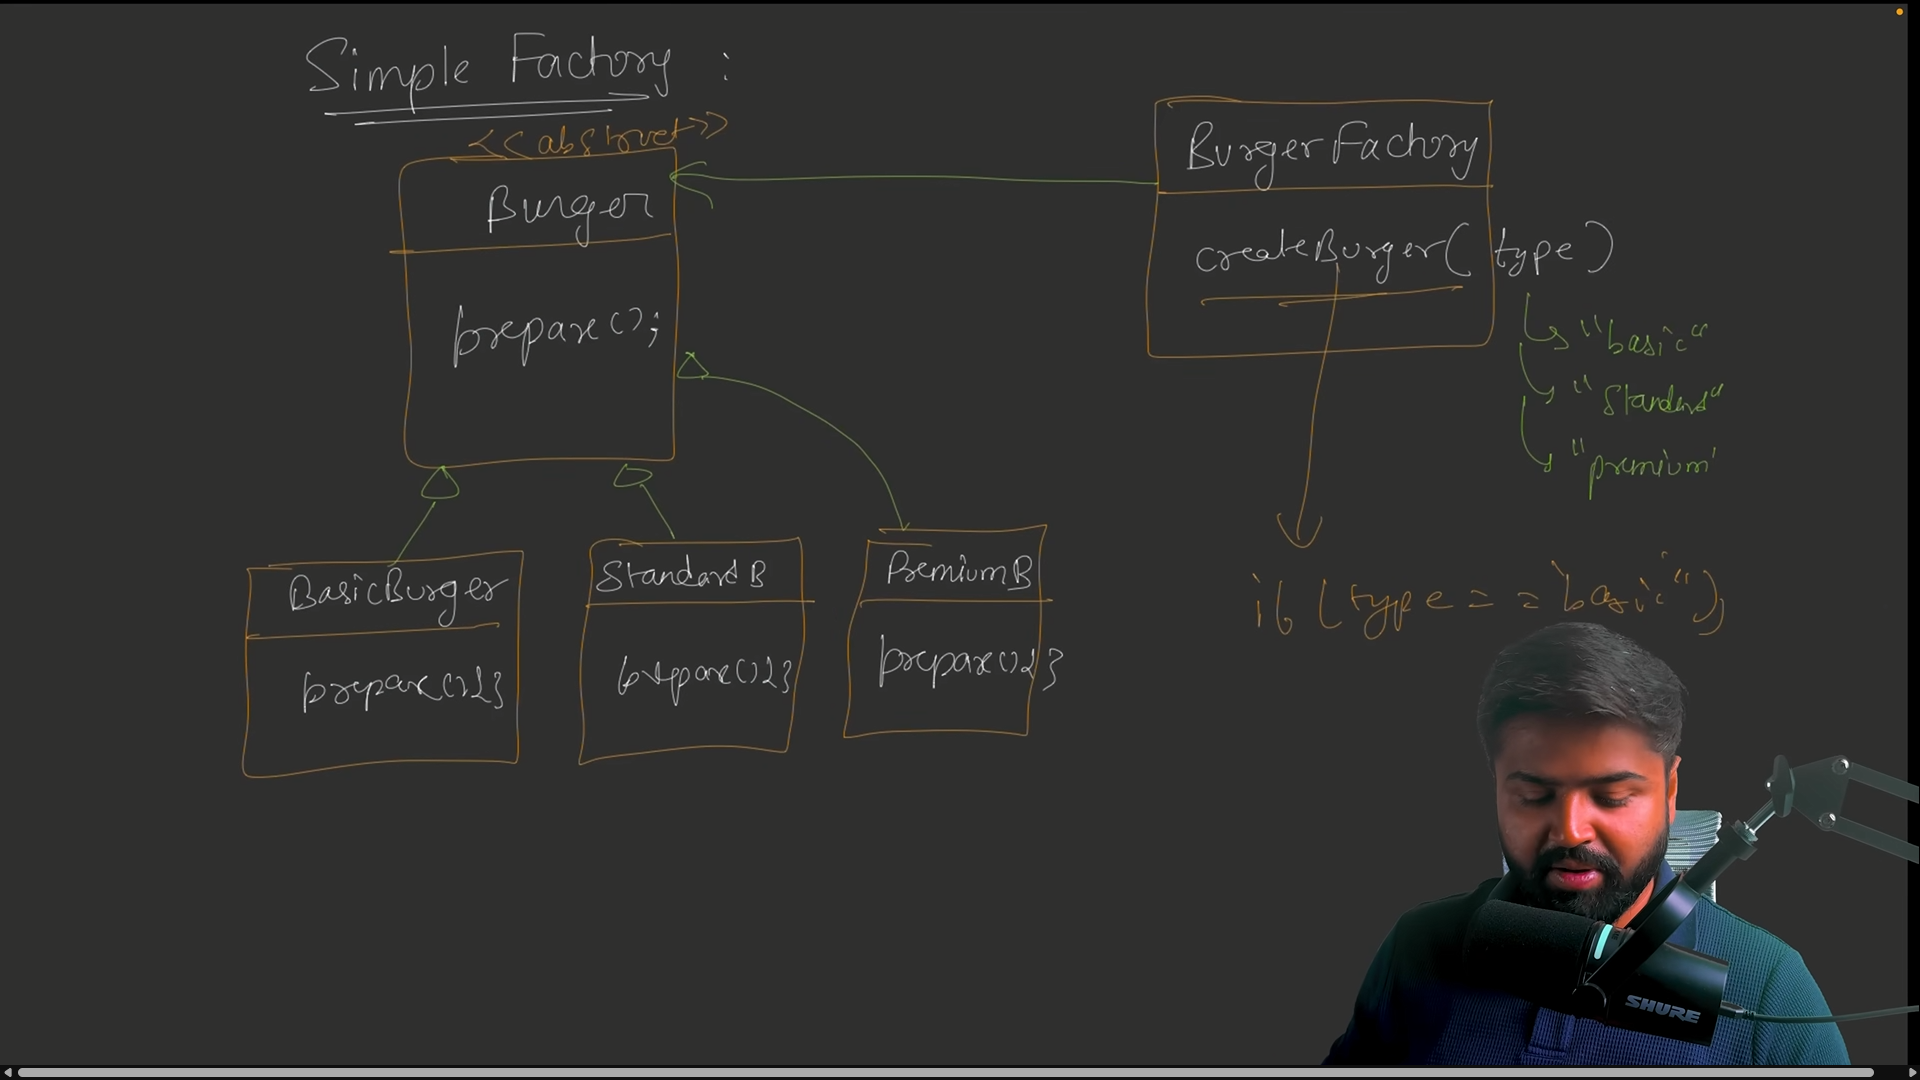 Simple Factory :
<<abstract>>
Burger
prepare();
BasicBurger
prepare(){}
StandardB
prepare(){}
PremiumB
prepare(){}
BurgerFactory
createBurger( type )
"basic"
"Standard"
"premium"
if (type == "basic")
SHURE